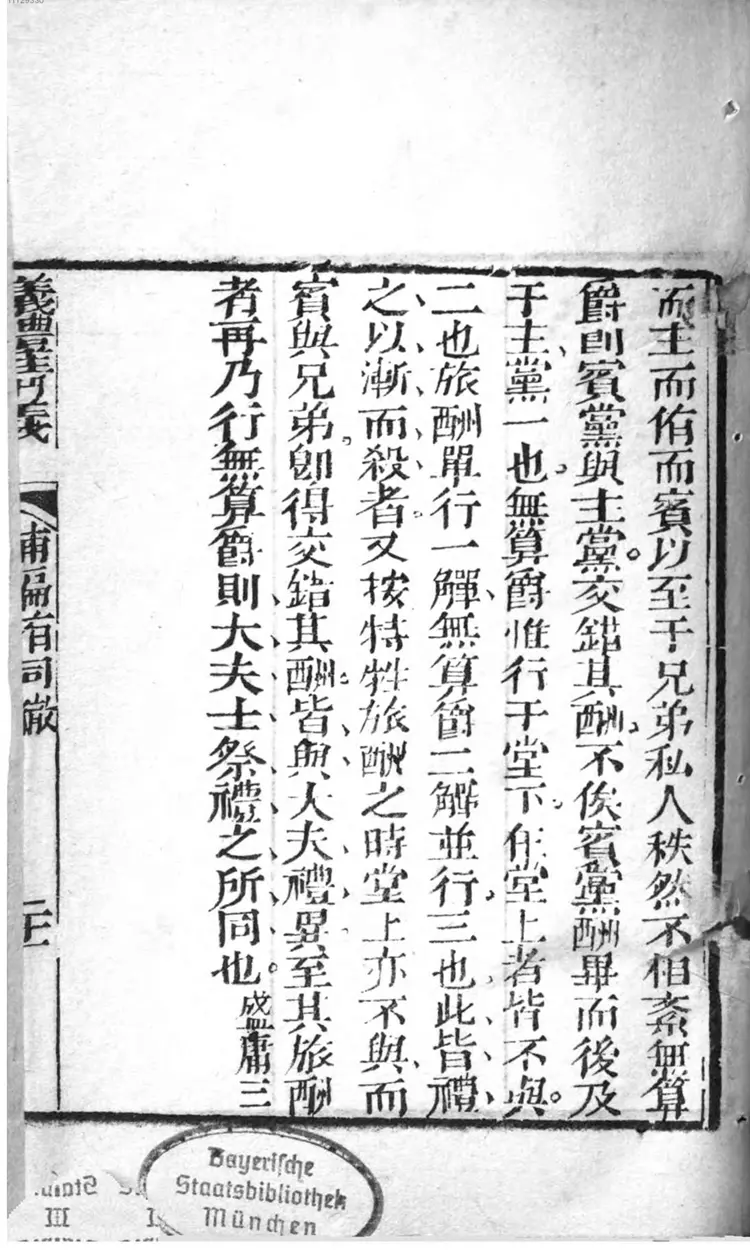 而主而侑而賓以至于兄弟私人秩然不相紊無算
爵則賓黨與主黨交錯其酬不俟賓黨酬畢而後及
于主黨一也無算爵惟行于堂下在堂上者皆不與
二也旅酬單行一觶無算爵二觶並行三也此皆禮
之以漸而殺者又按特牲旅酬之時堂上亦不與而
賓與兄弟卽得交錯其酬皆與大夫禮異至其旅酬
者再乃行無算爵則大夫士祭禮之所同也
盛庸三
有司徹
Bayerische
Staatsbibliothek
München